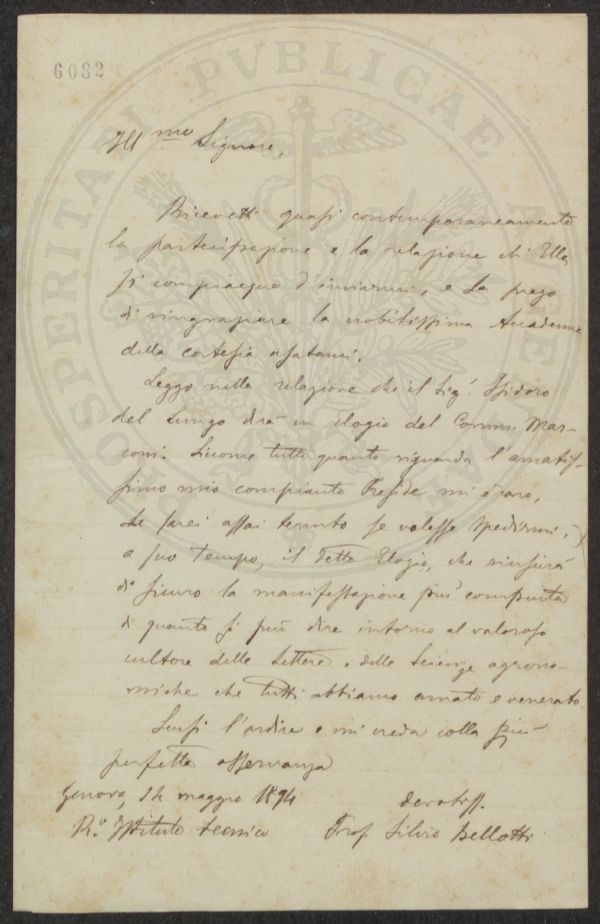 6082
PROSPERITATI PVBLICAE
Ill.mo Signore,
Ricevetti quasi contemporaneamente
la partecipazione e la relazione ch'Ella
si compiacque d'inviarmi, e La prego
di ringraziare la nobilissima Accademia
della cortesia usatami.
Leggo nella relazione che il Sig.r Isidoro
del Lungo dirà un Elogio del Comm. Mar-
coni. Siccome tutto quanto riguarda l'amatis-
simo mio compianto Preside mi è caro,
Le sarei assai tenuto se volesse spedirmi,
a suo tempo, il detto Elogio, che riuscirà
di sicuro la manifestazione più compiuta
di quanto si può dire intorno al valoroso
cultore delle Lettere e delle Scienze agrono-
miche che tutti abbiamo amato e venerato.
Scusi l'ardire e mi creda colla più
perfetta osservanza
Genova, 24 maggio 1894 devotiss.
R.o Istituto tecnico Prof. Silvio Bellotti